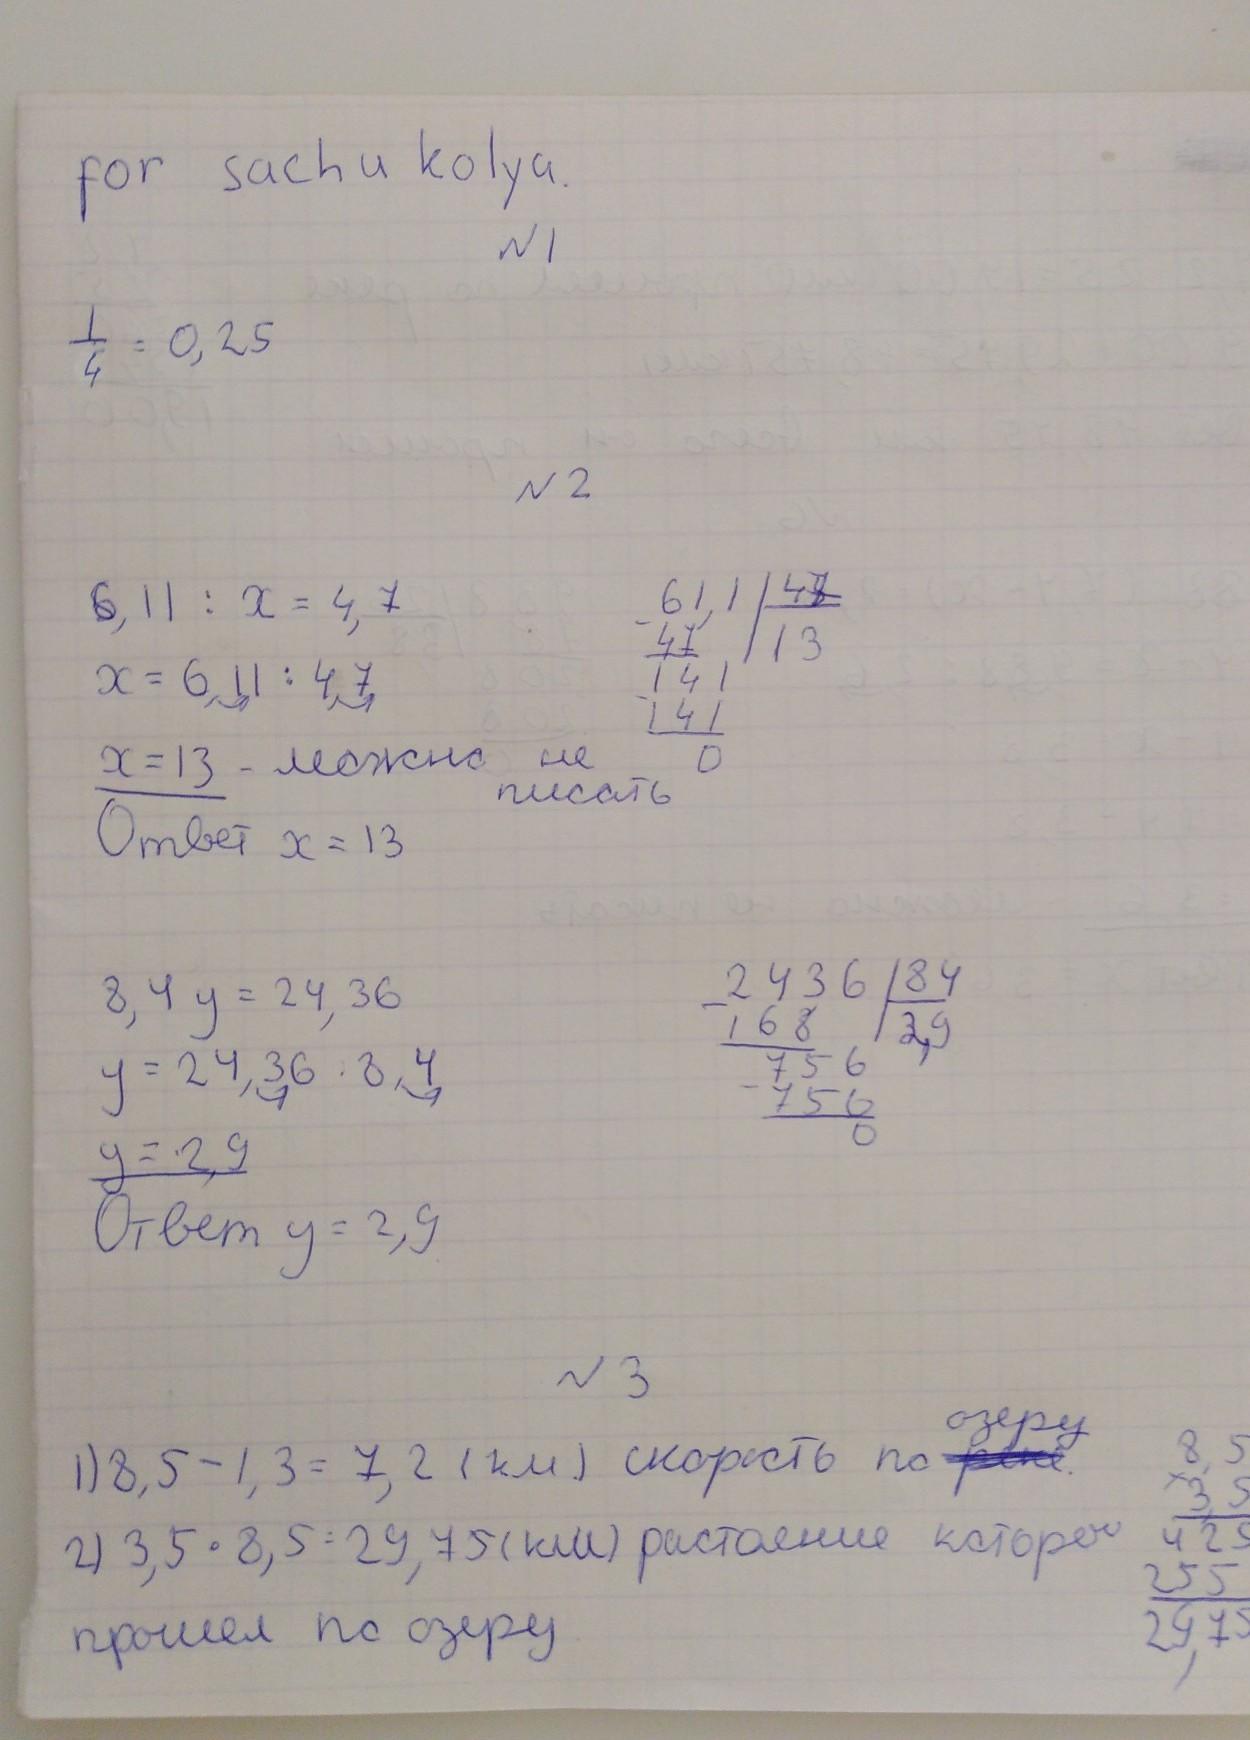 for sachu kolya.
N1
1/4 = 0,25
N2
6,11 : x = 4,7
x = 6,11 : 4,7
x = 13 - можно не
писать
Ответ x = 13
61,1 | 47
- 47 | 13
141
- 141
0
8,4 y = 24,36
y = 24,36 : 8,4
y = 2,9
Ответ y = 2,9
2436 | 84
- 168 | 2,9
756
- 756
0
N3
озеру
1) 8,5 - 1,3 = 7,2 (км) скорость по реке.
2) 3,5 · 8,5 = 29,75 (км) растояние которо
прошел по озеру
8,5
× 3,5
425
255
29,75